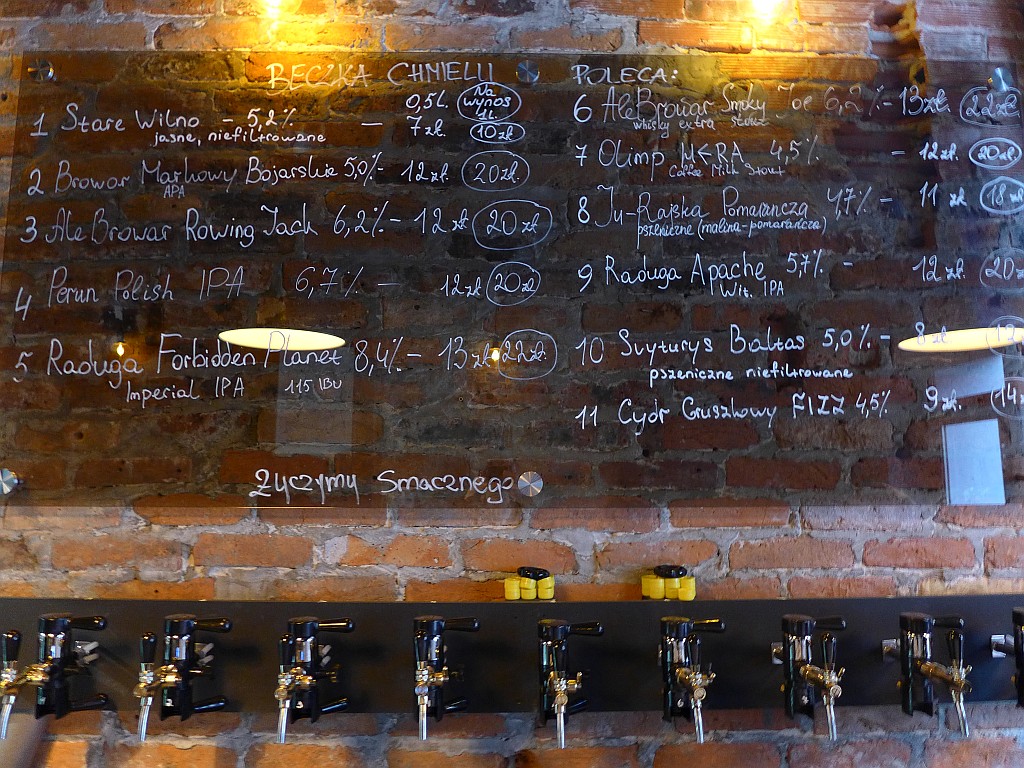 BECZKA CHMIELU POLECA:
0,5L. Na wynos 1L.
1 Stare Wilno - 5,2% — 7zł. 10zł.
jasne, niefiltrowane
2 Browar Markowy Bojarskie 5,0% - 12zł. 20zł.
APA
3 AleBrowar Rowing Jack 6,2% - 12zł 20zł
4 Perun Polish IPA 6,7% - 12zł 20zł
5 Raduga Forbidden Planet 8,4% - 13zł 22zł.
Imperial IPA 115 IBU
6 AleBrowar Smoky Joe 6,2% - 13zł. 22zł.
whisky extra stout
7 Olimp HERA 4,5% - 12zł. 20zł.
Coffee Milk Stout
8 Ju-Rajska Pomarańcza 4,7% - 11 zł 18zł
pszeniczne (malina-pomarańcza)
9 Raduga Apache 5,7% - 12zł. 20
Wit. IPA
10 Svyturys Baltas 5,0% - 8zł
pszeniczne niefiltrowane
11 Cydr Gruszkowy FIZZ 4,5% 9zł. (14
Życzymy Smacznego